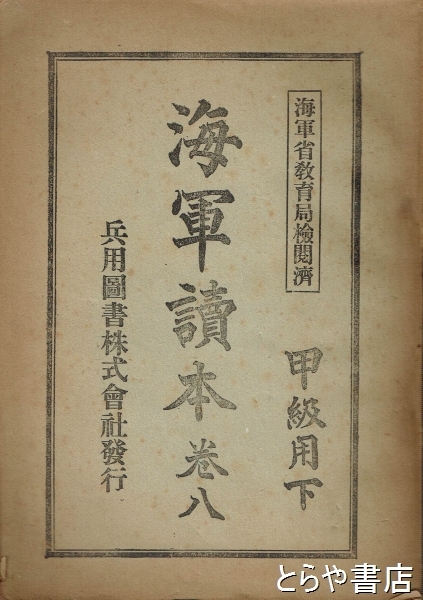 海軍省教育局檢閱濟
甲級用下
海軍讀本 卷八
兵用圖書株式會社發行
とらや書店